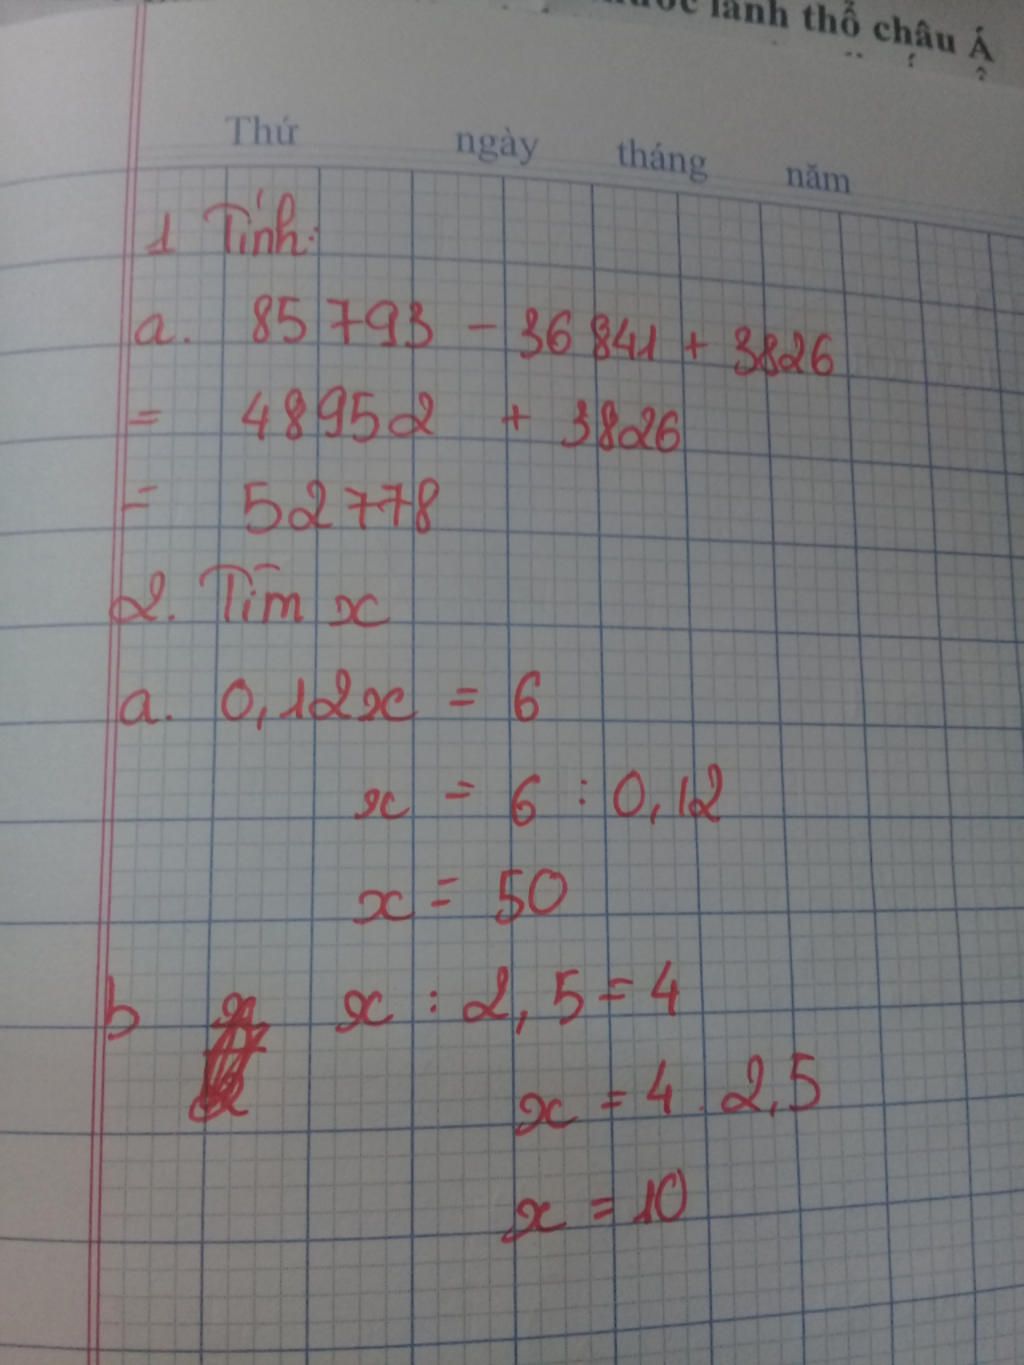 lãnh thổ châu Á
Thứ ngày tháng năm
1 Tính:
a. 85793 - 36841 + 3826
= 48952 + 3826
= 52778
2. Tìm x
a. 0,12x = 6
x = 6 : 0,12
x = 50
b x : 2,5 = 4
x = 4 . 2,5
x = 10